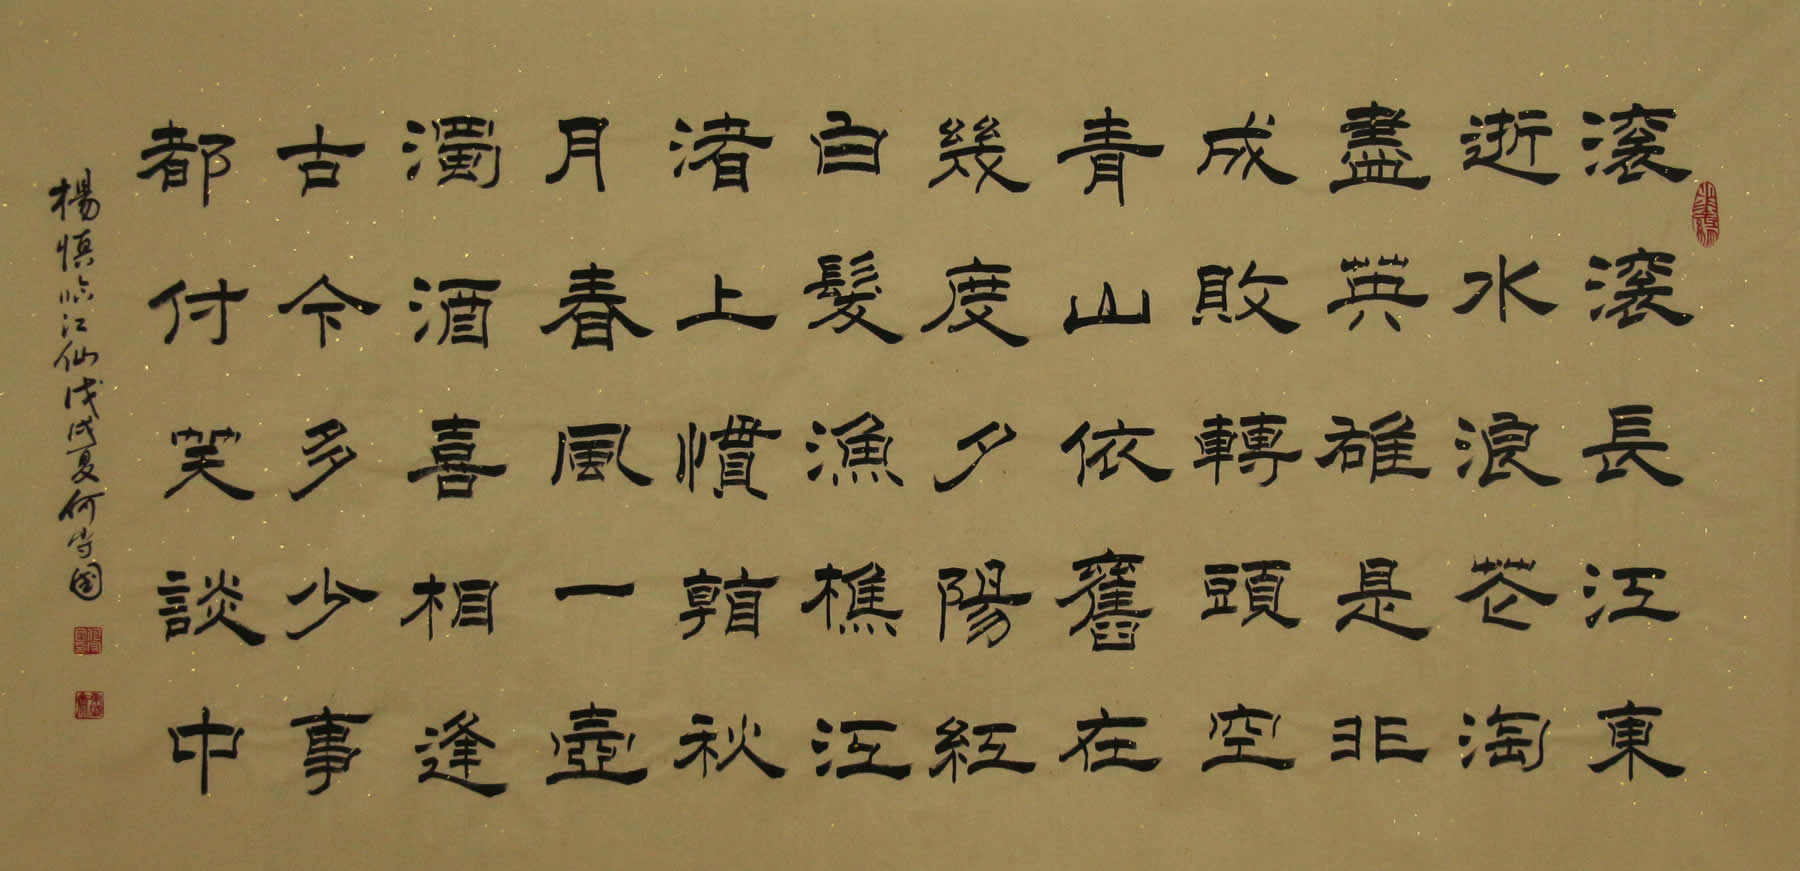 滚滚長江東
逝水浪花淘
盡英雄是非
成敗轉頭空
青山依舊在
幾度夕陽紅
白髮漁樵江
渚上慣看秋
月春風一壺
濁酒喜相逢
古今多少事
都付笑談中
楊慎臨江仙戊戌夏何守國